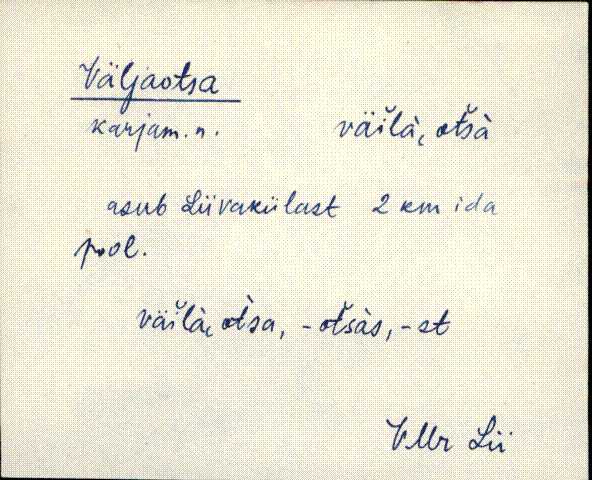 Väljaotsa
karjam. n. väĭlà, ot̆sà
asub Liivakülast 2 km ida
pool.
väĭlà, ot̀sa, -ot̆sàs, -st
VMr Lii